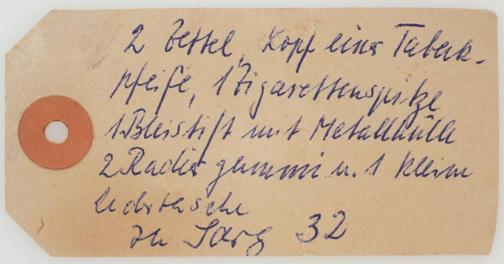 2 Zettel, Kopf einer Tabak-
pfeife, 1 Zigarettenspitze
1 Bleistift mit Metallhülle
2 Radiergummi u. 1 kleine
Ledertasche
zu Sarg 32